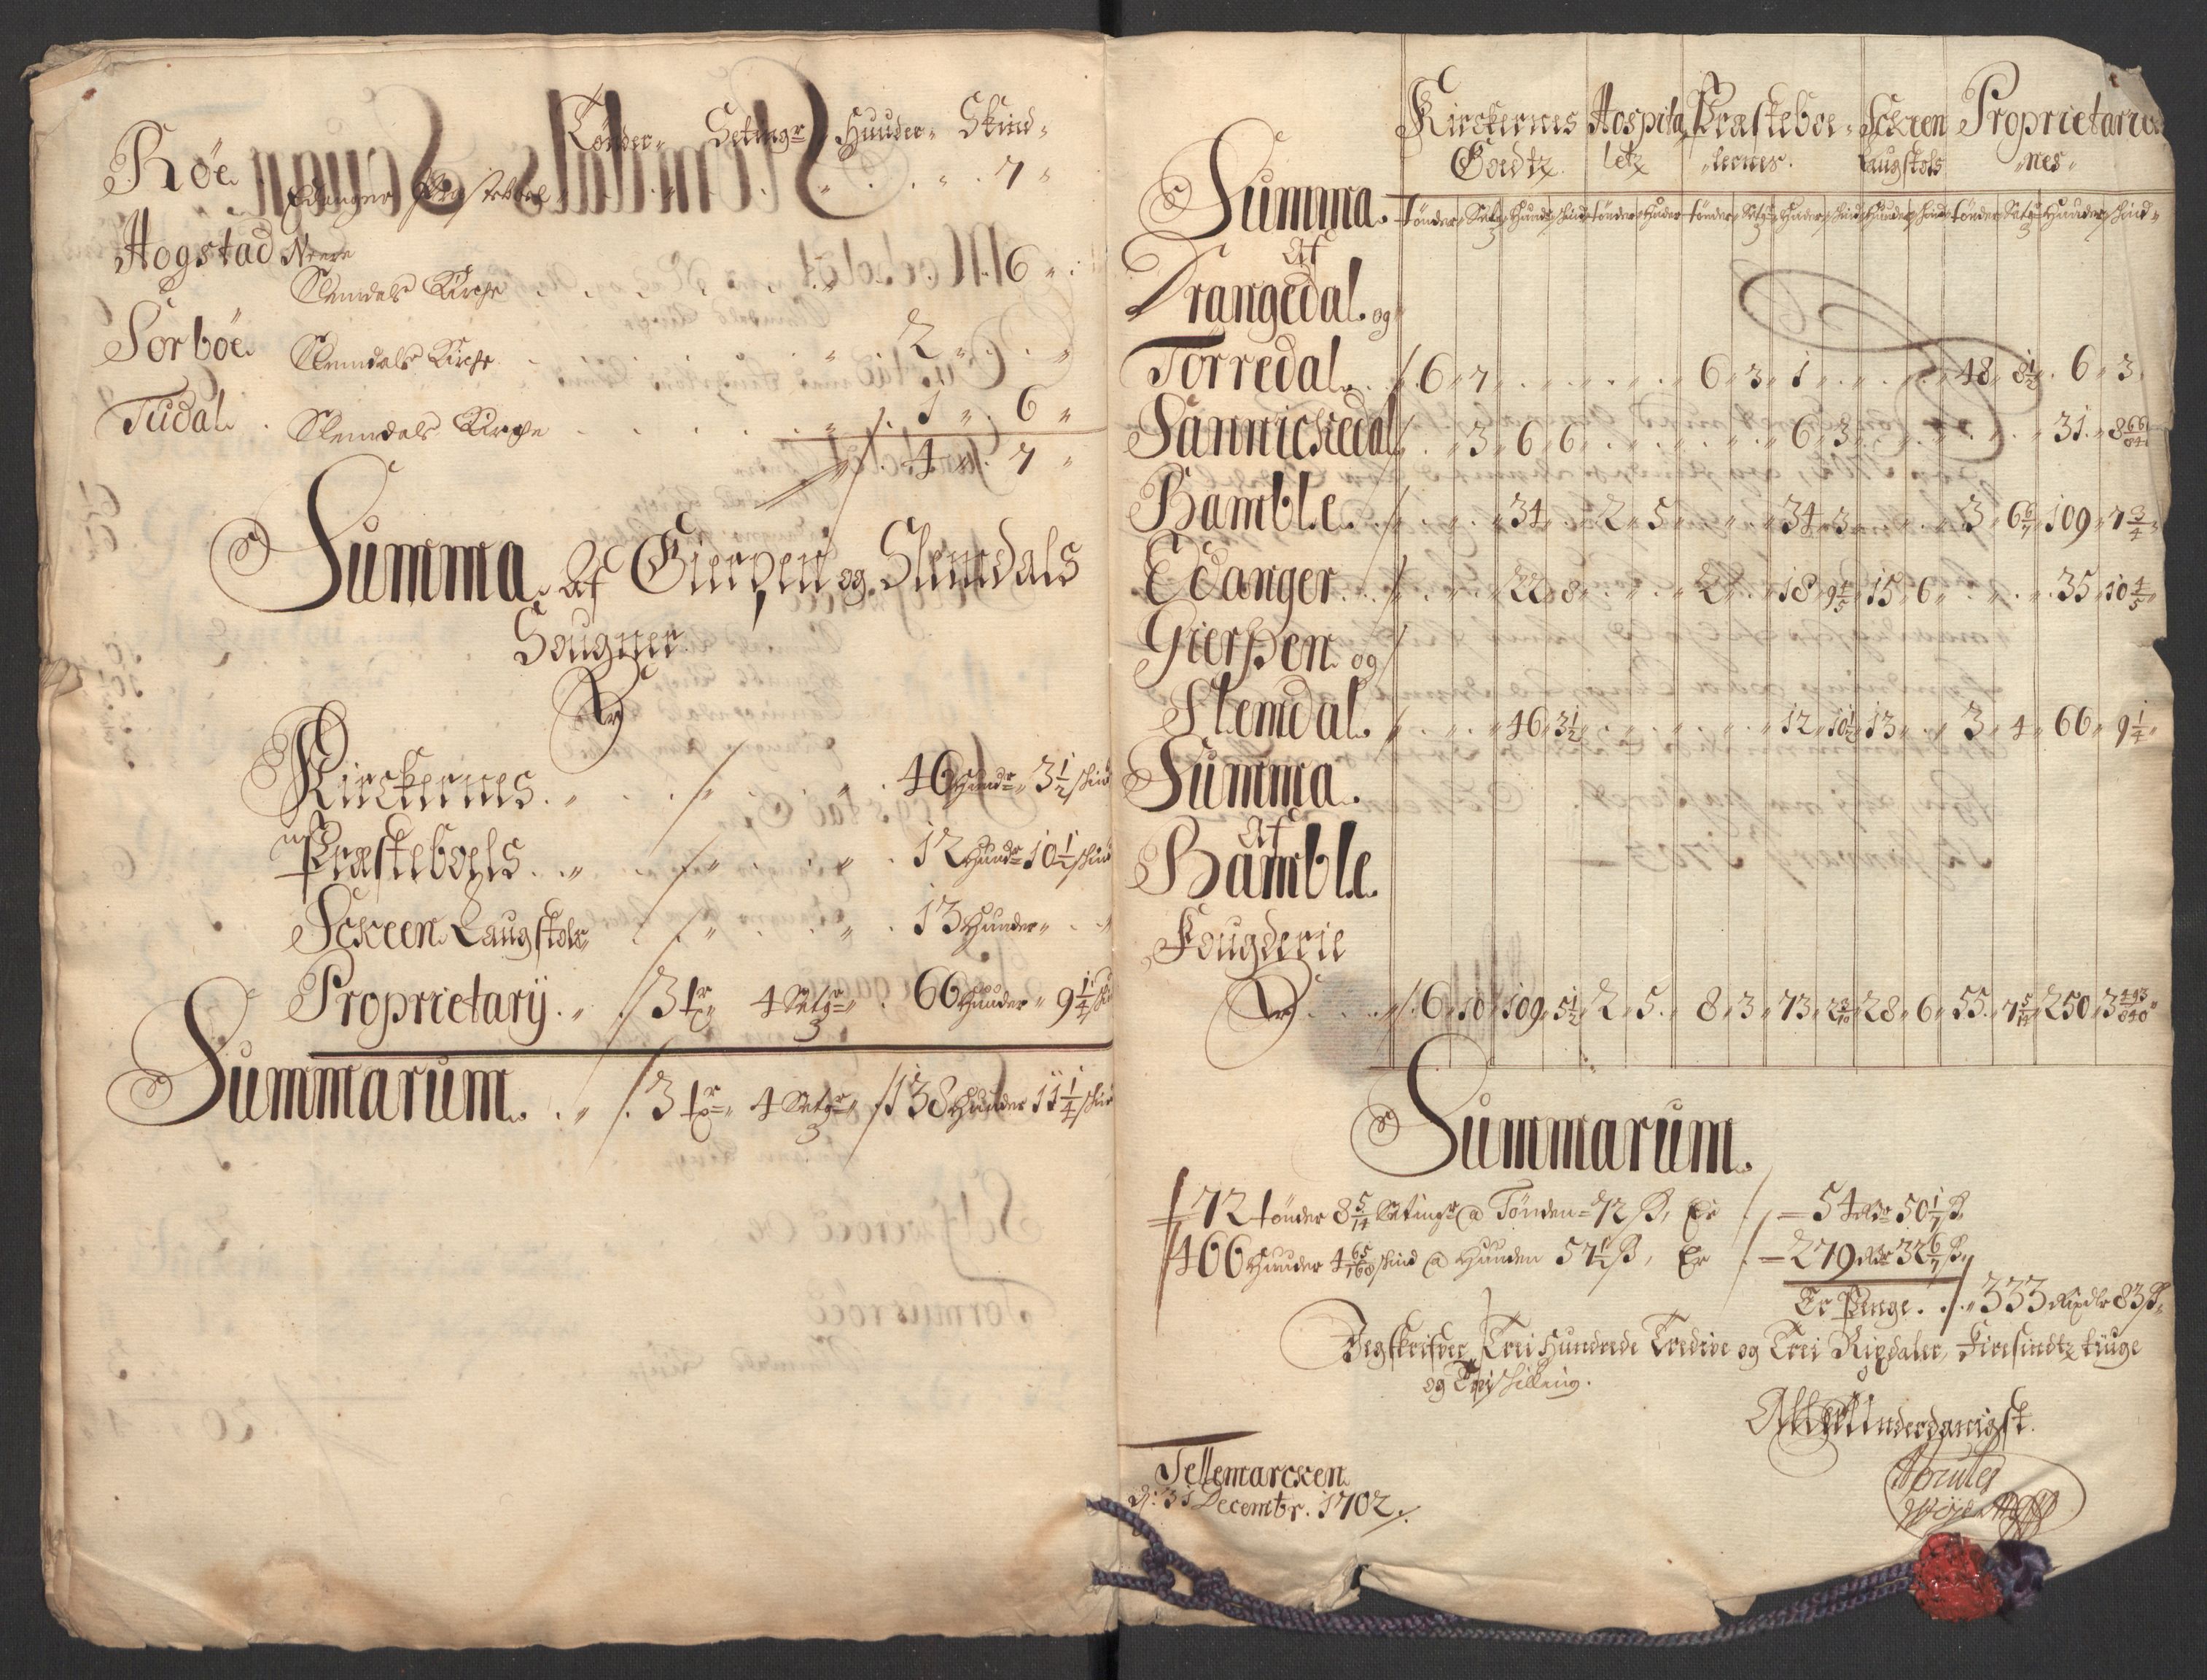 Tønder „ Setingr Hunder „ Skind „
Röe. Edanger Præsteboel „ . . „ . . „ . . „ 7 „
Hogstad Neere
Slemdals Kirche . . . . „ . . 6 „
Sorböe. Slemdals Kirche . . . . „ 2 „ . „
Tudal. Slemdals Kirche . . . . „ 1 „ 6 „
4 „ 7 „
Summa. Af Gierpen og Slemdals
Sougner.
Er
Kirckernes. „ . . „ . . „ . 46 Hundr „ 3 1/2 Skind
Præsteboels. . „ . . „ . . „ . 12 Hundr 10 1/2 Skind
Sckeen Laugstols „ . . „ . . „ . 13 Hunder „ . „
Proprietarÿ. „ 3 tr „ 4 Setgr „ . 66 Hunder „ 9 1/4 Sk
Summarum. . „ . 3 tr „ 4 Setgr „ 138 Hunder 11 1/4 Skind
Kirckernes Hospita Præsteboe „ Sckeen Proprietario
Goedtz. letz „lernes. Laugstols „nes „
Summa. Tønder Setgr Hundr Skind Tønder Huder Tønder Setgr Huder Skind Hunder Skind Tønder Setgr Hunder Skind „
Af
Drangedal. og
Torredal. . 6 „ 7 „ . „ . „ . „ . „ 6 „ 3 „ 1 „ . „ . „ 48 „ 8 1/2 „ 6 „ 3
Sannickedal . „ 3 „ 6 „ 6 „ . „ . „ . „ 6 „ 3 „ . „ . „ 31 „ 8 66/84
Bamble. . „ . „ 34 „ . 2 „ 5 „ . „ . „ 34 „ 3 „ . „ . 3 „ 6 6/7 „ 109 „ 7 3/4 „
Edanger . . „ . „ 22 „ 8 „ . „ . „ 2 „ . „ 18 „ 9 4/5 „ 15 „ 6 „ . „ . „ 35 „ 10 4/5 „
Gierpen. og
Slemdal. „ . „ . „ 46 „ 3 1/2 „ . „ . „ . „ . „ 12 „ 10 1/2 „ 13 „ . „ 3 „ 4 „ 66 „ 9 1/4 „
Summa.
Af
Bamble.
Fougderie
Er . . . „ 6 „ 10 „ 109 „ 5 1/2 „ 2 „ 5 „ 8 „ 3 „ 73 „ 2 3/10 „ 28 „ 6 „ 55 „ 7 5/14 „ 250 „ 3 433/840 „
Summarum.
72 tönder 8 5/14 Setingr @ Tönden = 72 ß, Er — 54 Rdr 50 1/7 ß
466 Hunder 4 65/168 Skind @ Hunden 57 1/2 ß, Er — 279 Rdr 32 6/7 ß
Er Penge. . „ 333 Rixdlr 83 ß „
Segskrifver Trei Hundrede Tredive og Trei Rixdaler, Firesindtz tiuge
og Trei skilling.
Aller Underdanigst.
Tellemarcken
d: 31 Decembr. 1702.